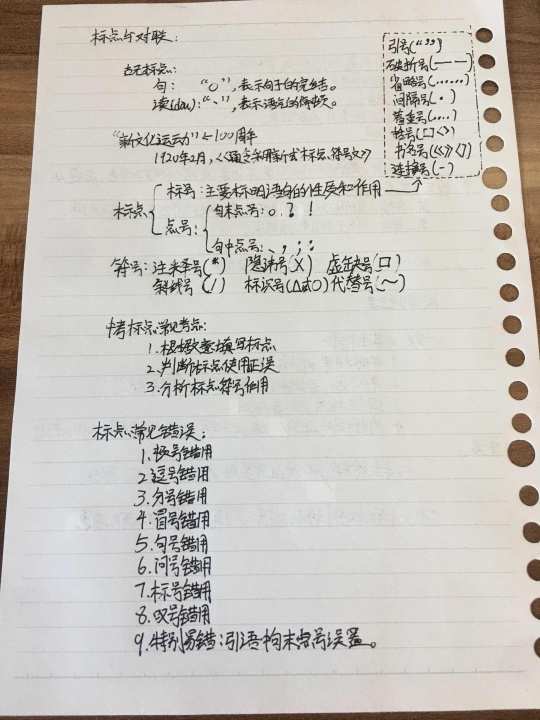 标点与对联：
古代标点：
句：“○”，表示句子的完结。
读(dòu)：“、”，表示语气的停顿。
“新文化运动”←100周年
1920年2月，《通令采用新式标点符号文》
标点
标号：主要标明语句的性质和作用
点号：
句末点号：。？！
句中点号：、，；：
符号：注释号(*) 隐讳号(X) 虚缺号(口)
斜线号(/) 标识号(Δ或○) 代替号(～)
中考标点常见考点：
1.根据文意填写标点
2.判断标点使用正误
3.分析标点符号作用
标点常见错误：
1.顿号错用
2.逗号错用
3.分号错用
4.冒号错用
5.句号错用
6.问号错用
7.标号错用
8.叹号错用
9.特别易错：引语末点号误置。
引号(“”‘’)
破折号(——)
省略号(……)
间隔号(·)
着重号(....)
括号(口〈〉)
书名号(《》〈〉)
连接号(-)